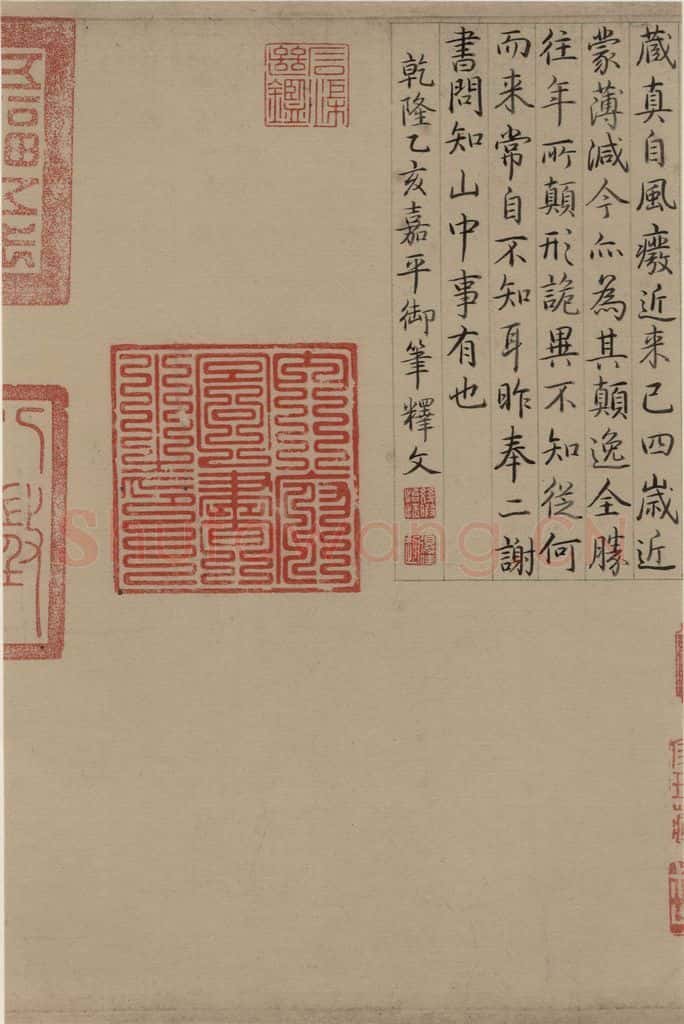 藏真自風癈近来已四歲近
蒙薄減今亦為其顛逸全勝
往年所顛形詭異不知從何
而来常自不知耳昨奉二謝
書問知山中事有也
乾隆乙亥嘉平御筆釋文
Shufawang.CN